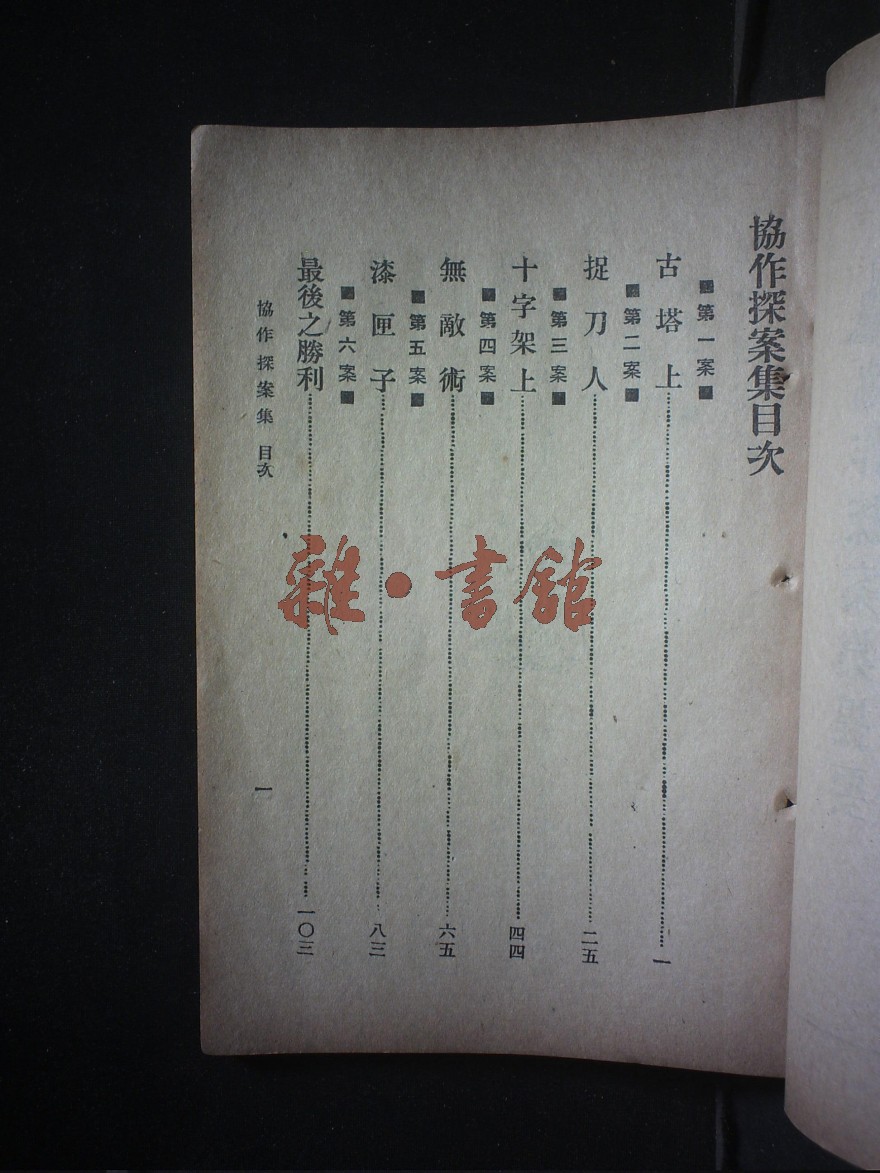 協作探案集目次
第一案
古塔上 一
第二案
捉刀人 二五
第三案
十字架上 四四
第四案
無敵術 六五
第五案
漆匣子 八三
第六案
最後之勝利 一〇三
協作探案集 目次
一
雜·書館